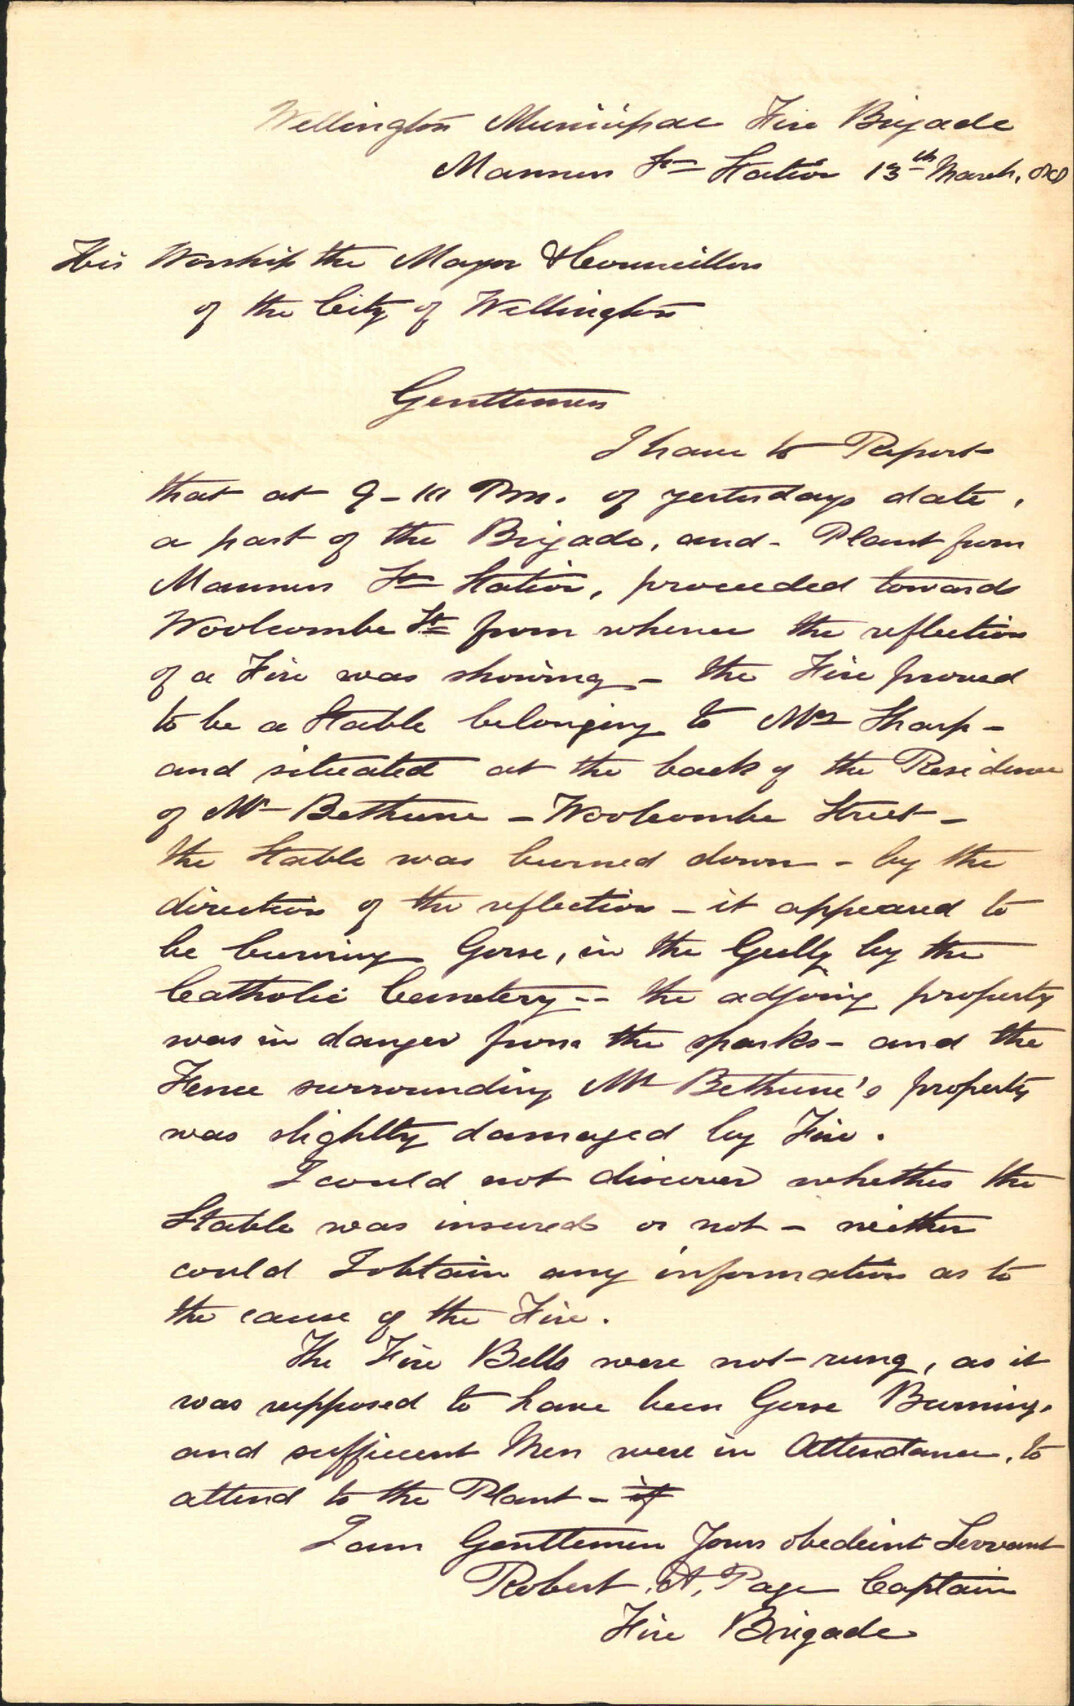 Wellington Municipal Fire Brigade
Manners St Station 13th March,
His Worship the Mayor & Councillors
of the City of Wellington
Gentlemen
I have to Report
that at 9-10 Pm. of yesterdays date,
a part of the Brigade, and - Plant from
Manners St Station, proceeded towards
Woolcombe St from whence the reflection
of a Fire was showing - the Fire proved
to be a Stable belonging to Mrs Sharp -
and situated at the back of the Residence
of Mr Bethune - Woolcombe Street -
the Stable was burned down - by the
direction of the reflection - it appeared to
be burning Gorse, in the Gully by the
Catholic Cemetery -- the adjoing property
was in danger from the sparks - and the
Fence surrounding Mr Bethune's property
was slightly damaged by Fire.
I could not discover whether the
Stable was insured or not - neither
could I obtain any information as to
the cause of the Fire.
The Fire Bells were not rung, as it
was supposed to have been Gorse Burning.
and sufficent Men were in Attendance, to
attend to the Plant - if
I am Gentlemen Yours obedeint Servant
Robert. A, Page Captain
Fire Brigade